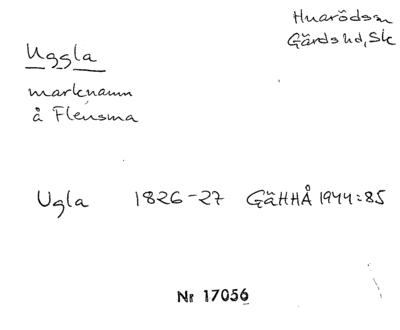 Huarödsm
Gärds hd, Sk
Uggla
marknamn
å Flensma
Ugla 1826-27 GäHHÅ 1944:85
Nr 17056